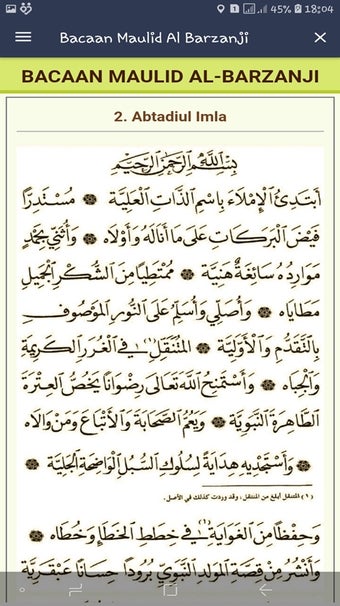 45% 18:04
Bacaan Maulid Al Barzanji
BACAAN MAULID AL-BARZANJI
2. Abtadiul Imla
بِسْمِ اللَّهِ الرَّحْمَنِ الرَّحِيمِ
أَبْتَدِئُ الْإِمْلَاءَ بِاسْمِ الذَّاتِ الْعَلِيَّةِ مُسْتَدِرًّا
فَيْضَ الْبَرَكَاتِ عَلَى مَا أَنَالَهُ وَأَوْلَاهُ وَأُثَنِّي بِحَمْدٍ
مَوَارِدُهُ سَائِغَةٌ هَنِيَّةٌ مُمْتَطِيًا مِنَ الشُّكْرِ الْجَمِيلِ
مَطَايَاهُ وَأُصَلِّي وَأُسَلِّمُ عَلَى النُّورِ الْمَوْصُوفِ
بِالتَّقَدُّمِ وَالْأَوَّلِيَّةِ الْمُنْتَقِلِ (١) فِي الْغُرَرِ الْكَرِيمَةِ
وَالْجِبَاهِ وَأَسْتَمْنِحُ اللَّهَ تَعَالَى رِضْوَانًا يَخُصُّ الْعِتْرَةَ
الطَّاهِرَةَ النَّبَوِيَّةَ وَيَعُمُّ الصَّحَابَةَ وَالْأَتْبَاعَ وَمَنْ وَالَاهُ
وَأَسْتَجْدِيهِ هِدَايَةً لِسُلُوكِ السُّبُلِ الْوَاضِحَةِ الْجَلِيَّةِ
(١) المتنقل أبلغ من المنتقل، وقد وردت كذلك في الأصل.
وَحِفْظًا مِنَ الْغَوَايَةِ فِي خِطَطِ الْخَطَإِ وَخُطَاهُ
وَأَنْشُرُ مِنْ قِصَّةِ الْمَوْلِدِ النَّبَوِيِّ بُرُودًا حِسَانًا عَبْقَرِيَّةً